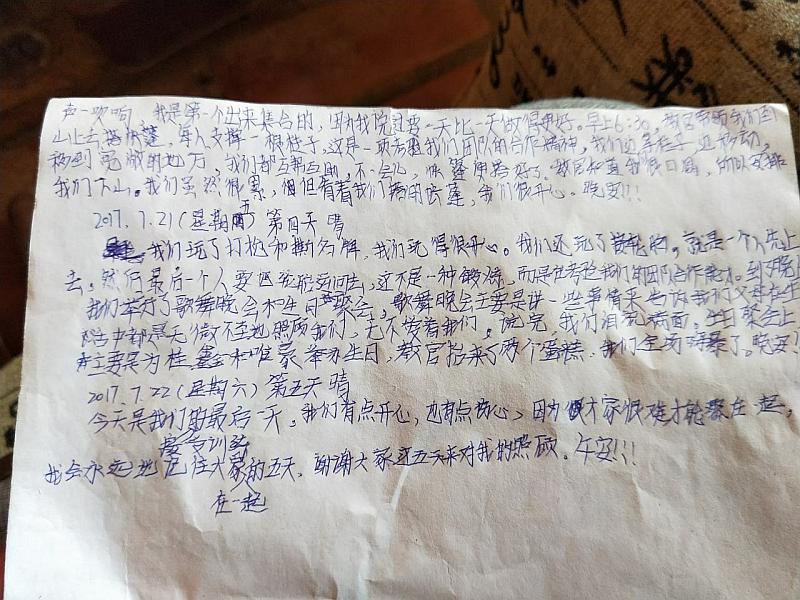 声一吹响，我是第一个出来集合的，因为我说过要一天比一天做得更好。早上6:30，教官带着我们到
山上去搭帐篷，每人支撑一根柱子，这是一项考验我们团队的合作精神，我们边拿柱子边移动，
移到宽敞的地方，我们都互帮互助，不一会儿，帐篷便搭好了。教官知道我很口渴，所以安排
我们下山。我们虽然很累，但有着我们搭的帐篷，我们很开心。晚安!!!
2017.7.21(星期五)第四天 晴
我们玩了打枪和撕名牌，我们玩得很开心。我们还玩了，就是一个人先上
去，然后最后一个人要，这不是一种锻炼，而是在考验我们的团队合作能力。到了晚上
我们举行了歌舞晚会和生日聚会，歌舞晚会主要是讲一些事情来告诉我们父母在生
活中都是无微不至地照顾我们，无不爱着我们。说完，我们泪流满面。生日聚会上
主要是为桂鑫和唯豪举办生日，教官抬来了两个蛋糕，我们全场嗨爆了。晚安!
2017.7.22(星期六)第五天 晴
今天是我们的最后一天。我们有点开心，也有点伤心，因为大家很难才能聚在一起，
我会永远地记住大家在一起的五天，谢谢大家这五天来对我的照顾。午安!!!